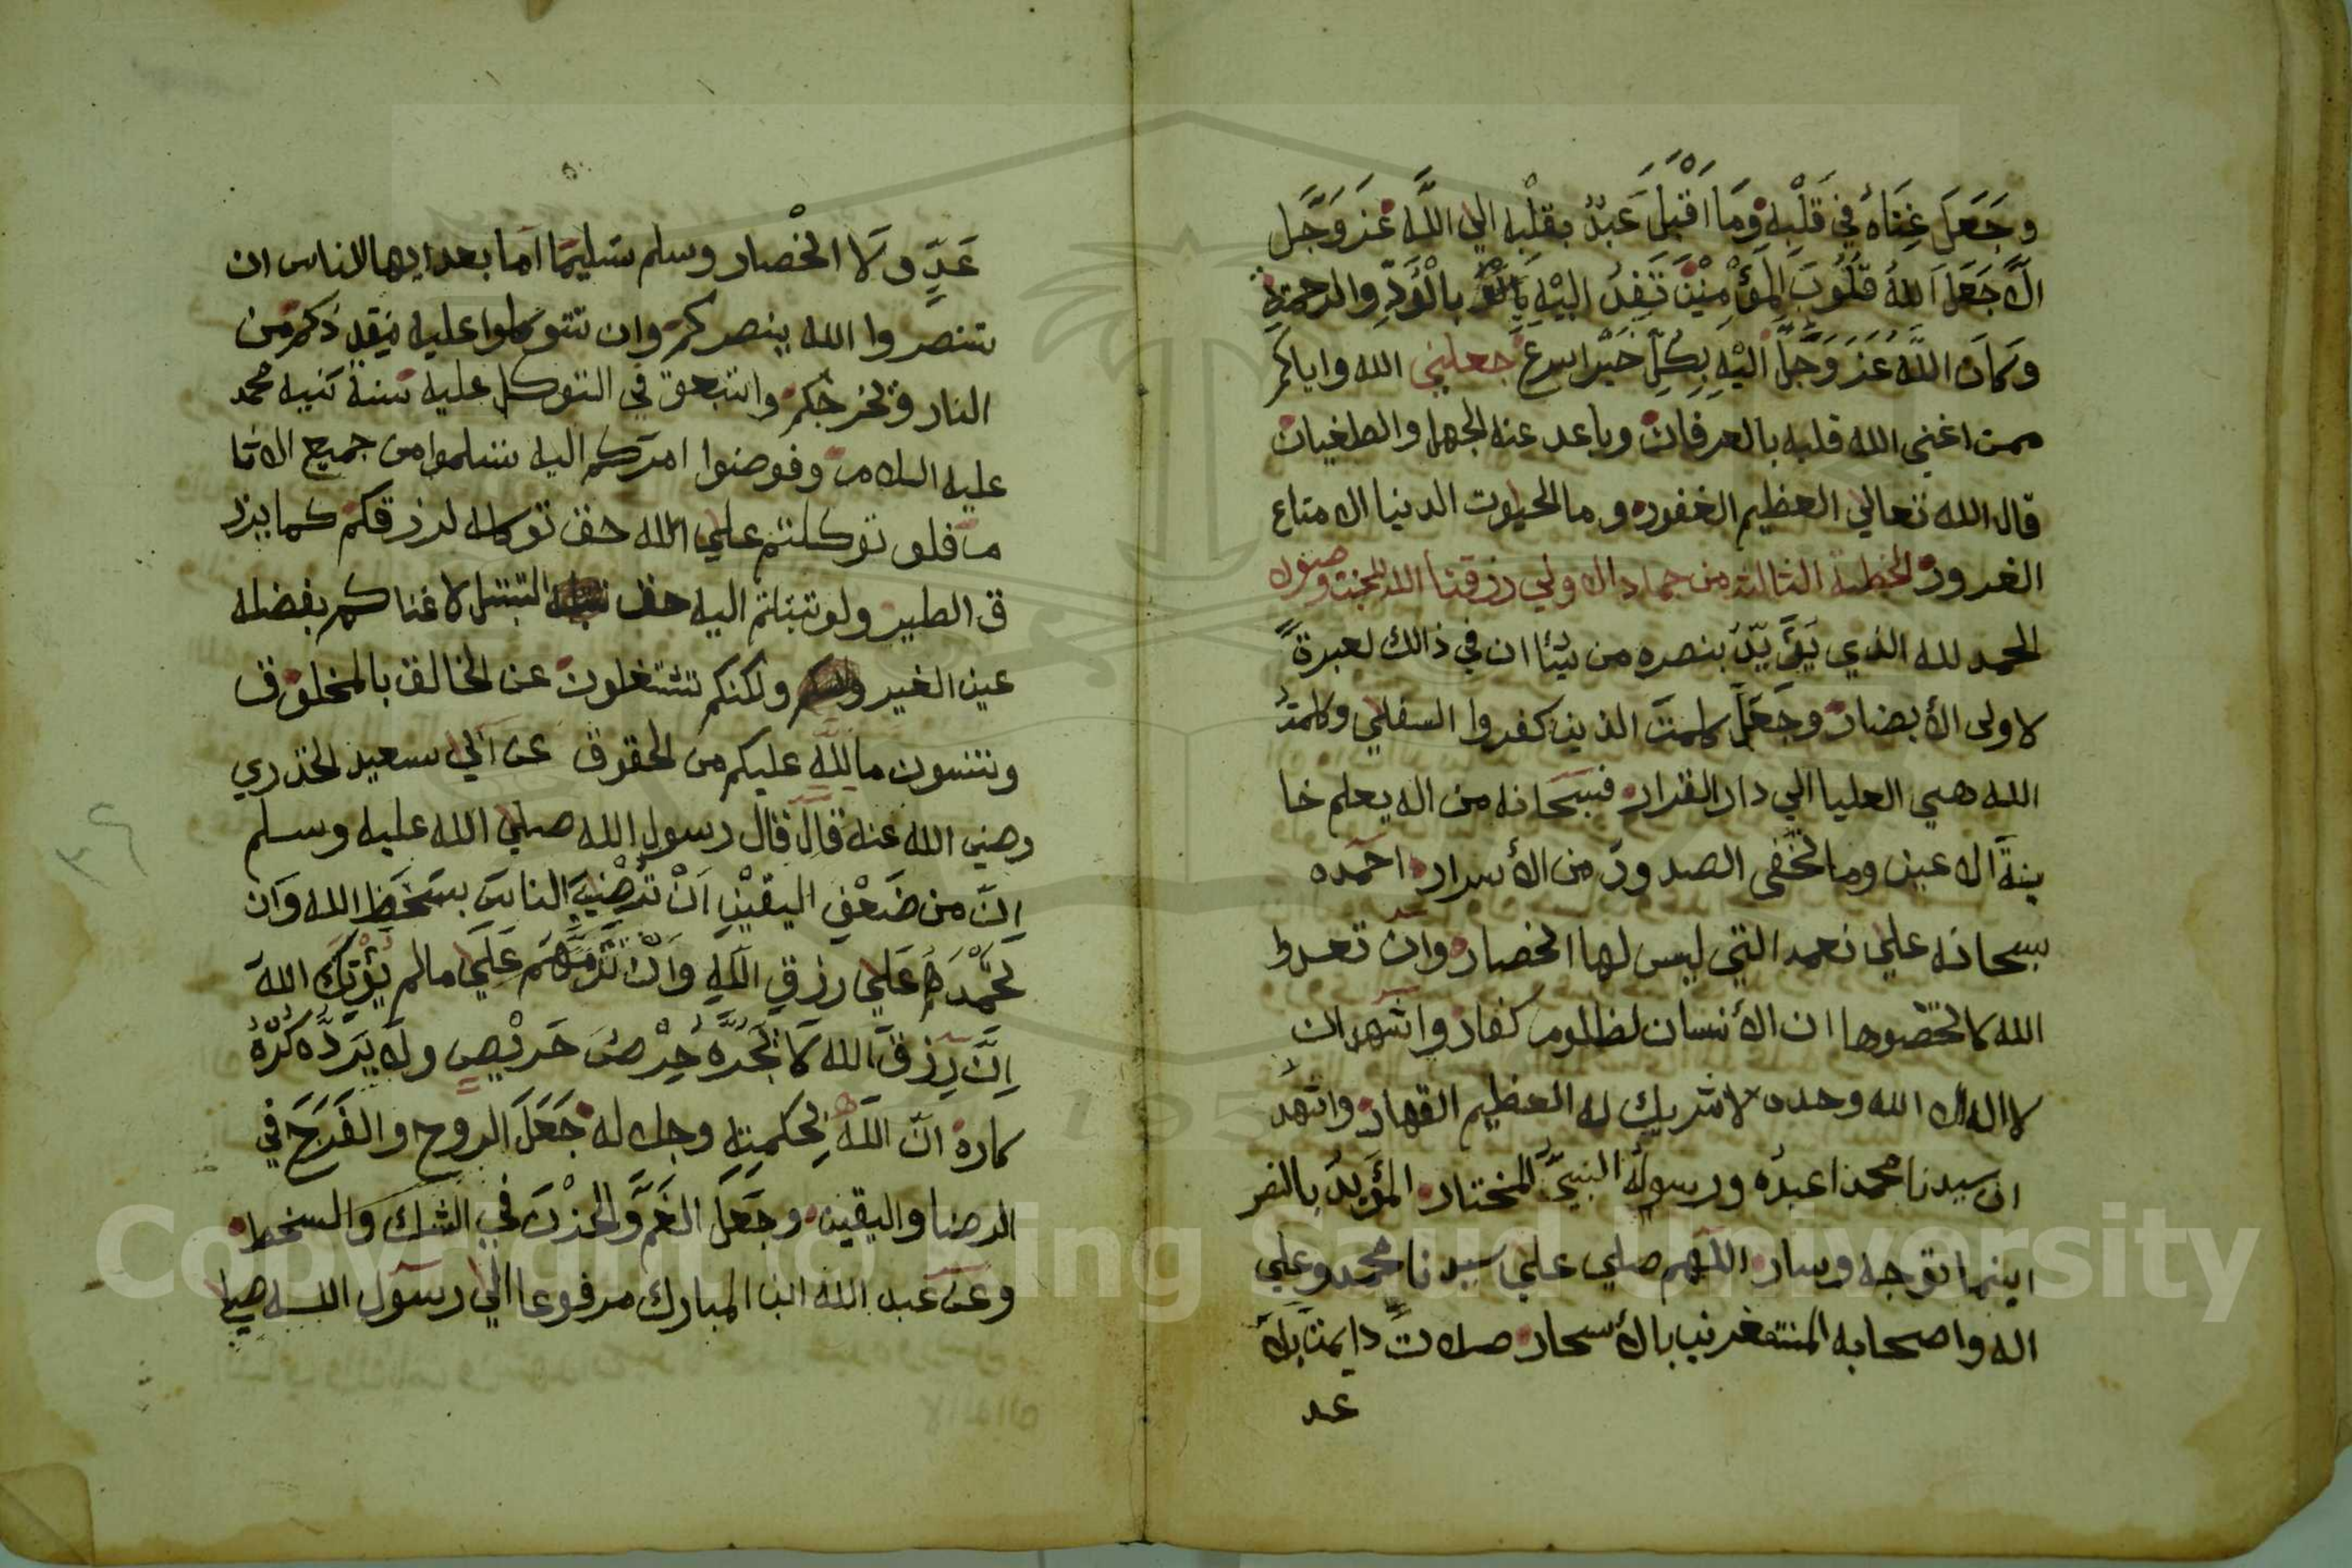 وجَعَلَ غِنَاهُ فِي قَلْبِهِ وَمَا اَقْبَلَ عَبْدٌ بقلْبِه الي اللَّه عَزَ وَجَّل
الَّا جَعَلَ اللهُ قُلُوبَ الْمُؤْمِنِيْنَ تَفِدُ اليْهِ بالْوُدِّ والرحمتِ
وَكَانَ اللَّهُ عَزَ وَجَّلَّ اليْهِ بِكِلِّ خَيْر اسرع جعلني الله واياكم
ممن اغني الله قلبه بالعرفان وباعد عنه الجهل والطغيان
قال الله تعالي العظيم الغفور وما الحيوت الدنيا الا متاع
الغرور الخطبة الثالثة من جماد الاولي رزقنا الله الجنت وحوره
الحمد لله الذي يَؤَيِّدُ بنصره من يشا ان في ذالك لعبرةً
لاولي الأبصار وجَعَلَ كلمتَ الذين كفروا السفلي وكلمتُ
الله هي العليا الي دار القرار فسبحانه من اله يعلم خا
ينةَ الاعين وما تخفى الصدورُ من الأسرار احمده
سبحانه علي نعمه التي ليس لها انحصار وان تعدوا
الله لا تحصوها ان الأنسان لظلوم كفار واشهد ان
لا اله الا الله وحده لا شريك له العظيم القهار واشهدُ
ان سيدنا محمدا عبدُه ورسولُه النبيّ المختار المؤيد بالنصر
اينما توجه وسار اللهم صلي علي سيدنا محمد وعلي
اله واصحابه المستغفرين بالأسحار صلاتً دايمتً بلا
عد
عَدٍّ ولَا انحْصار وسلم تسليمًا اما بعد ايها الناس ان
تنصروا الله ينصركم وان تتوكلوا عليه ينقذكم من
النار ويخرجكم واتبعو في التوكل عليه سنة نبيه محمد
عليه السلام وفوضوا امركم اليه تسلموا من جميع الاثا
م فلو توكلتم علي الله حق توكله لرزقكم كما يرز
ق الطير ولو تبتلتم اليه حق التبتل لاغناكم بفضله
عين الغير ولكنكم تشتغلون عن الخالق بالمخلوق
وتنسون ما للَّهِ عليكم من الحقوق عن ابي سعيد الخذري
رضي الله عنه قال قال رسول الله صلي الله عليه وسلم
اِنَّ من ضَعْفِ اليقيْنِ اَنْ تُرْضِيَ الناسَ بسَخَطِ الله وَان
تحْمَدَهُم عَلي رزقِ اللَّهِ وَاَنْ تَذُمَّهُمْ عَلَي مالم يُؤْتِكَ اللهُ
اِنَّ رِزقَ الله لَا يَجُرّهُ حِرْصُ حَريْصٍ ولا يَرَدُّه كُرْهُ
كاره انّ اللَّهَ بحكمتِهِ وجلاله جَعَلَ الروح والفَرَحَ في
الرضا واليقين وجَعَلَ الغَمَّ والحزْنَ في الشك وَالسخط
وعن عبد الله ابن المبارك مرفوعا الي رسول الله صلي